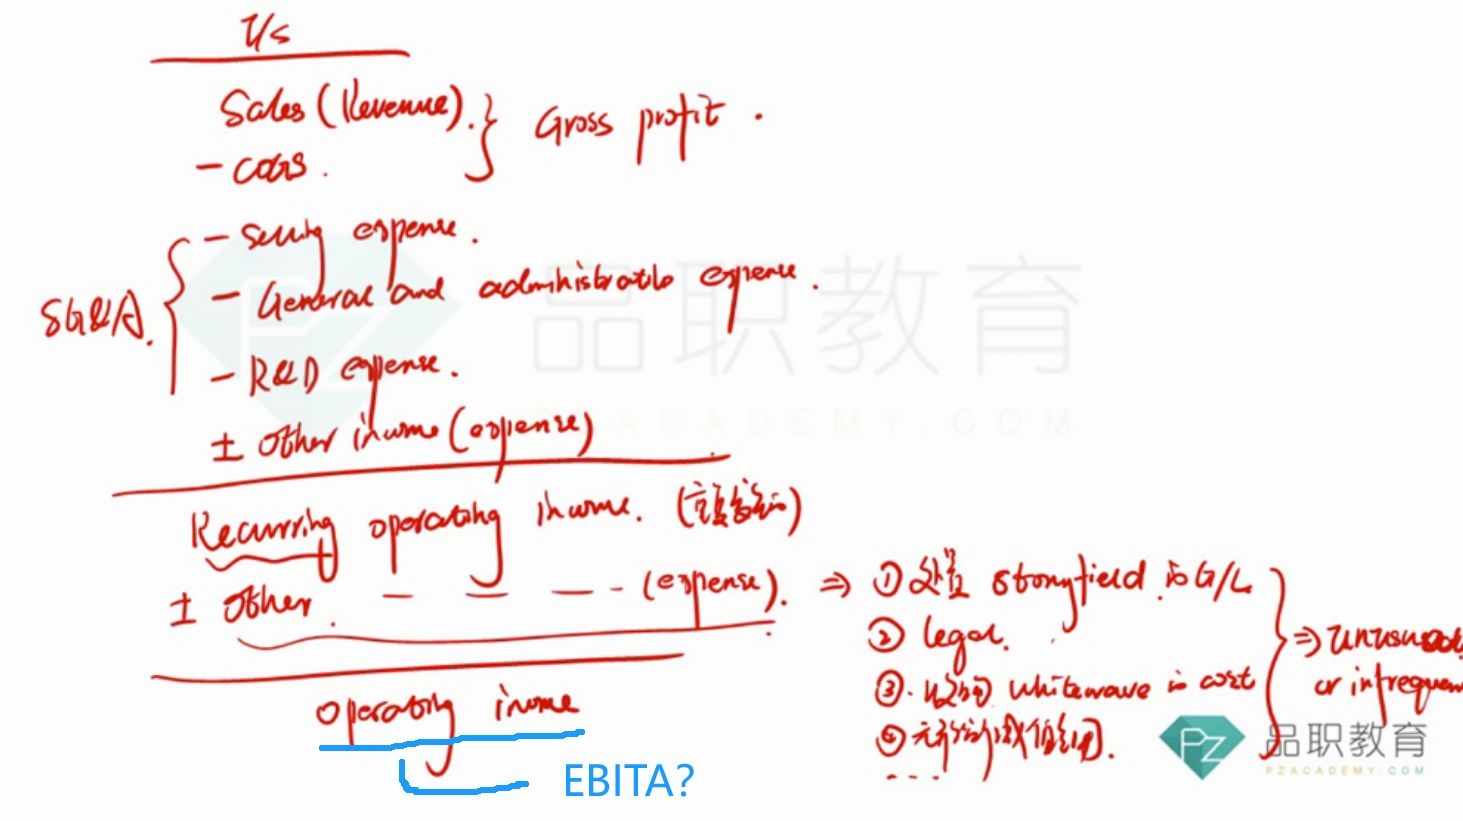 I/S
Sales (Revenue).
- COGS.
Gross profit.
SG&A.
- Selling expense.
- General and administrative expense.
- R&D expense.
± Other income (expense)
Recurring operating income.
± Other. — — — - (expense).
⇒ ① 处置 Stonyfield 的 G/L
② legal.
③. 收购 whitewave 的 cost
④ 无形资产减值
.....
⇒ unusual
or infrequen
operating income
EBITA?
品职教育
PZACADEMY.COM
PZ
品职教育
PZACADEMY.COM